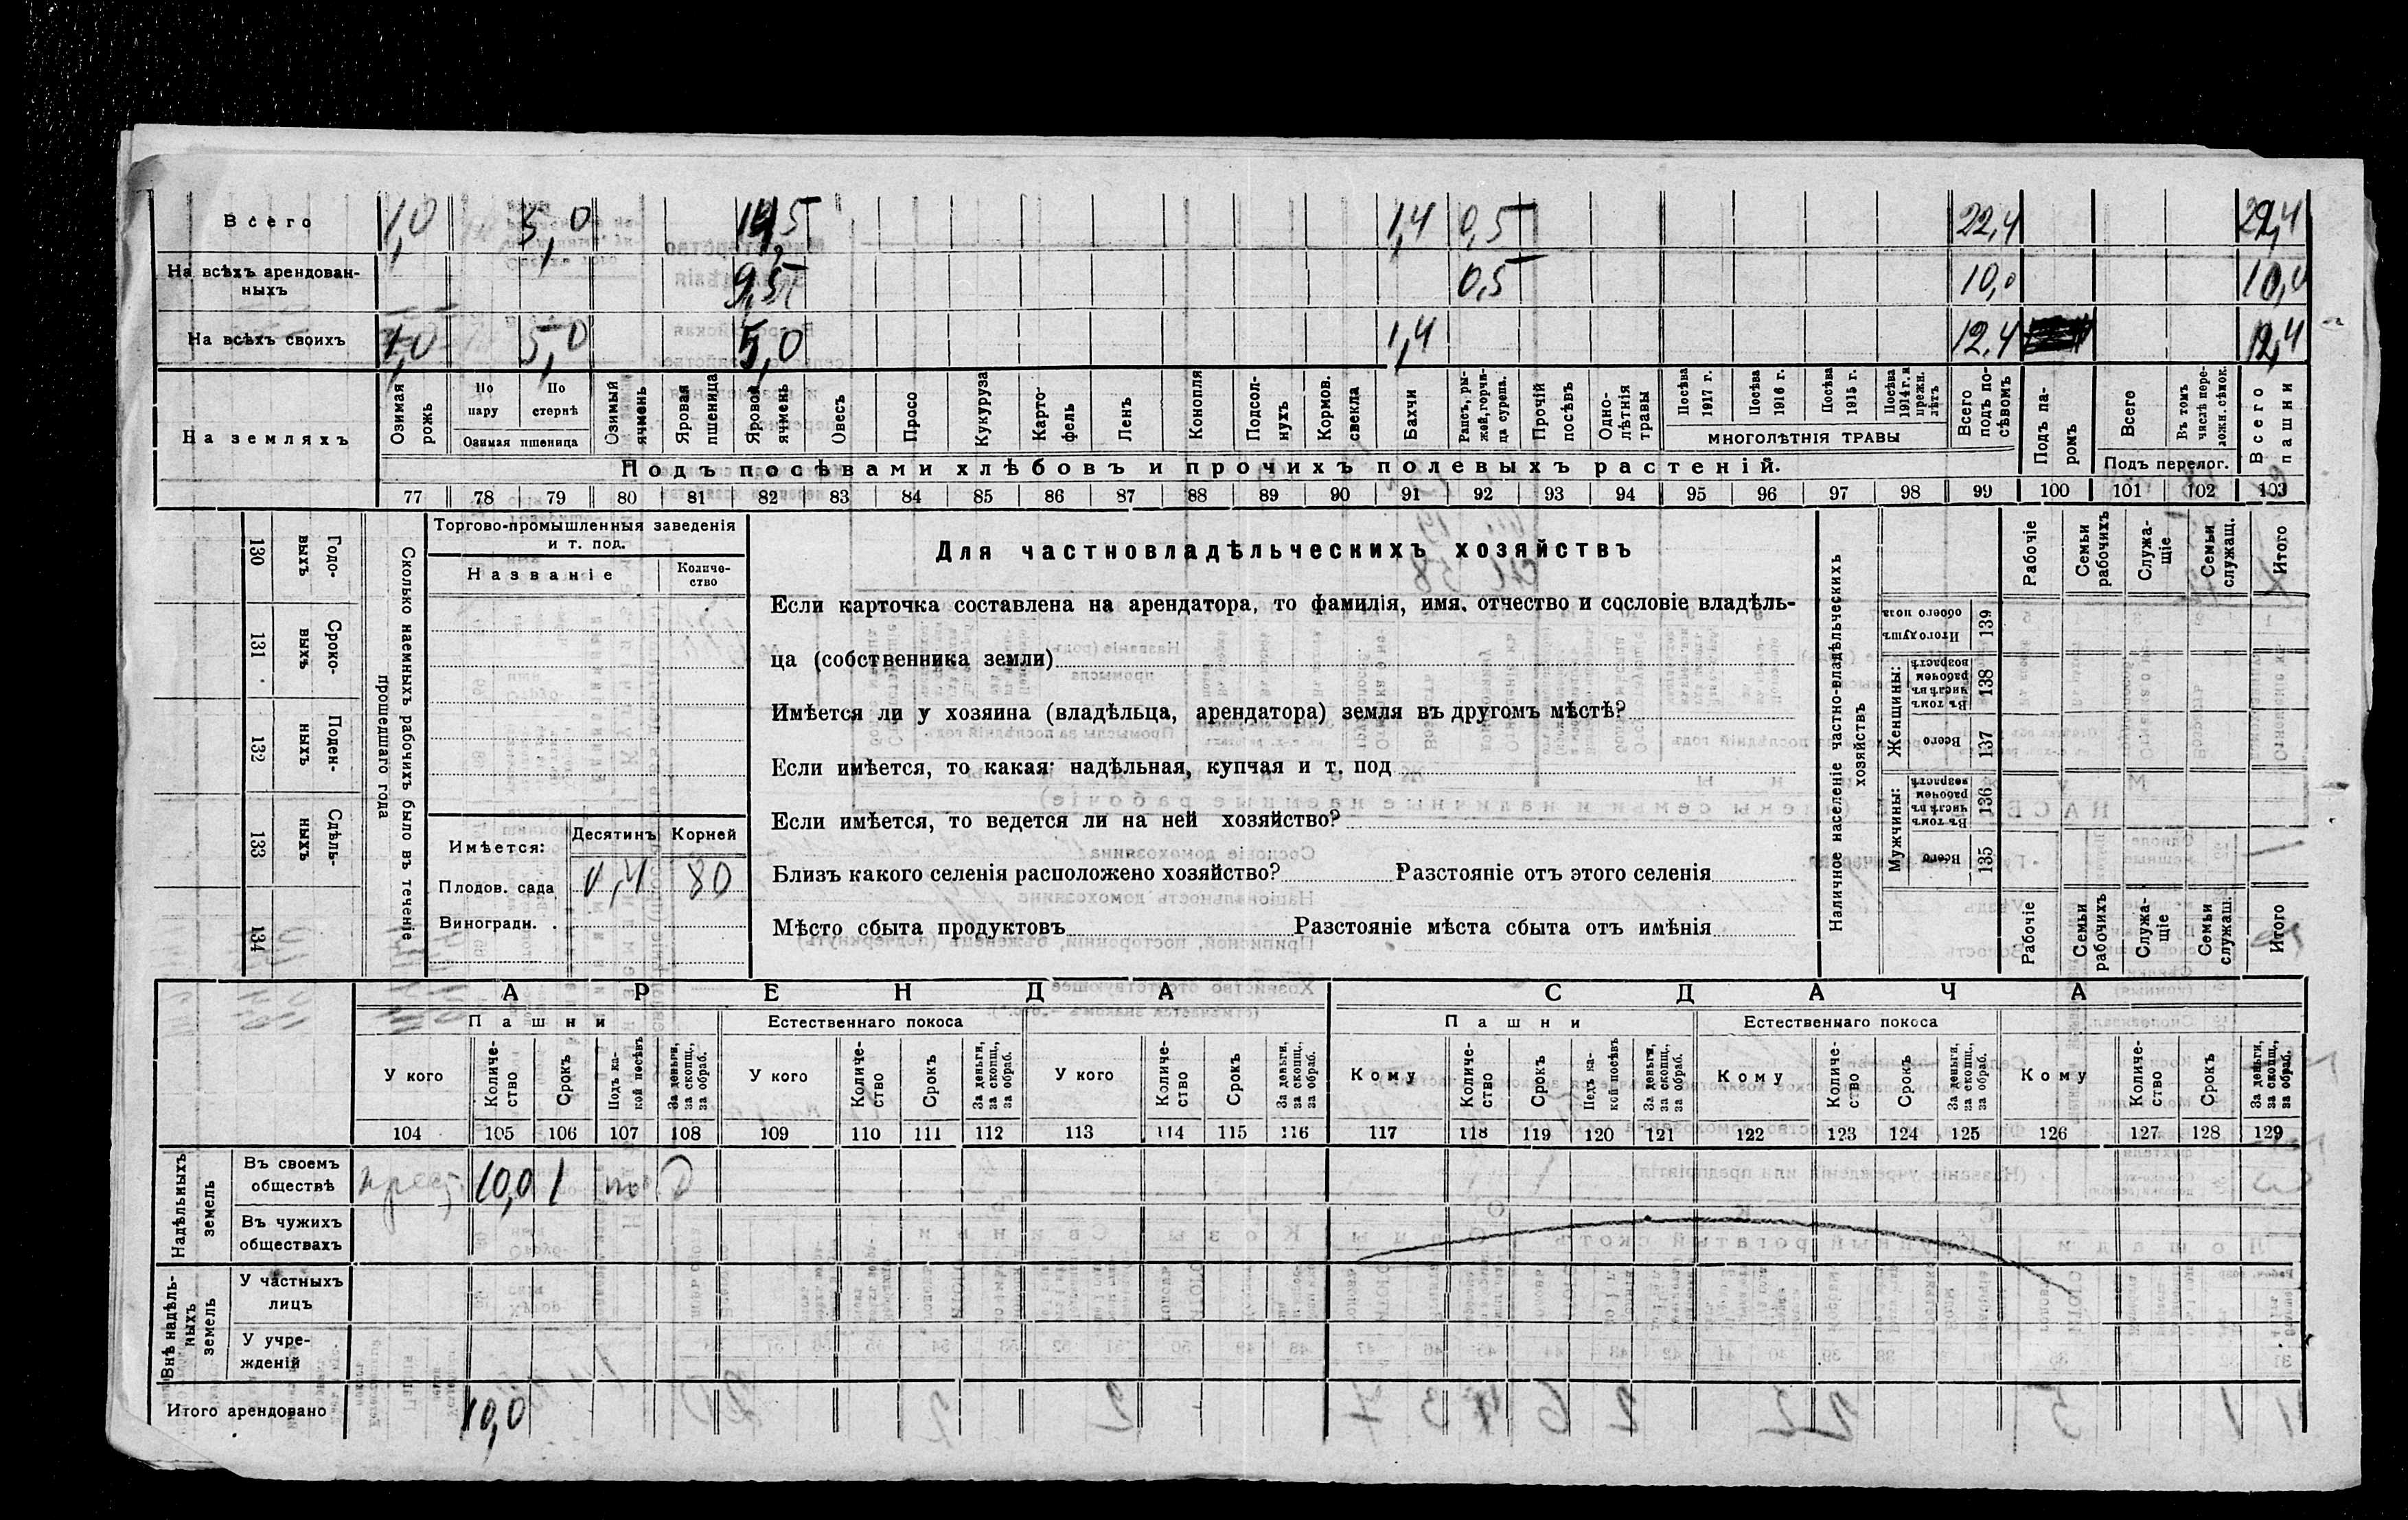 Всего 1,0 5,0 14,5 1,4 0,5 22,4 22,4
На всѣхъ арендован-
ныхъ 9,5 0,5 10,0 10,0
На всѣхъ своихъ 1,0 5,0 5,0 1,4 12,4 12,4
На земляхъ
Озимая рожь
По пару
По стернѣ
Озимая пшеница
Озимый ячмень
Яровая пшеница
Яровой ячмень
Овесъ
Просо
Кукуруза
Карто-
фель
Ленъ
Конопля
Подсол-
нухъ
Кормов. свекла
Бахчи
Рапсъ, ры-
жей, горчи-
ца сурепа.
Прочій посѣвъ
Одно-
лѣтнія травы
Посѣва 1917 г.
Посѣва 1916 г.
Посѣва 1915 г.
Посѣва 1914 г. и прежн. лѣтъ
МНОГОЛѢТНІЯ ТРАВЫ
Всего подъ по-
сѣвомъ
Подъ па-
ромъ
Всего
Въ томъ числѣ пере-
ложн. сѣнок.
Подъ перелог.
Всего пашни
Подъ посѣвами хлѣбовъ и прочихъ полевыхъ растеній.
77 78 79 80 81 82 83 84 85 86 87 88 89 90 91 92 93 94 95 96 97 98 99 100 101 102 103
130 Годо-
выхъ
131 Сроко-
выхъ
132 Поден-
ныхъ
133 Сдѣль-
ныхъ
134
Сколько наемныхъ рабочихъ было въ теченіе
прошедшаго года
Торгово-промышленныя заведенія
и т. под.
Названіе
Количе-
ство
Имѣется: Десятинъ Корней
Плодов. сада 0,4 80
Виноградн.
Для частновладѣльческихъ хозяйствъ
Если карточка составлена на арендатора, то фамилія, имя, отчество и сословіе владѣль-
ца (собственника земли)
Имѣется ли у хозяина (владѣльца, арендатора) земля въ другомъ мѣстѣ?
Если имѣется, то какая: надѣльная, купчая и т. под
Если имѣется, то ведется ли на ней хозяйство?
Близъ какого селенія расположено хозяйство? Разстояніе отъ этого селенія
Мѣсто сбыта продуктовъ Разстояніе мѣста сбыта отъ имѣнія
Наличное населеніе частно-владѣльческихъ
хозяйствъ
Рабочіе
Семьи рабочихъ
Служа-
щіе
Семьи служащ.
Итого
Итого душъ обоего пола 139
Женщины:
Въ томъ числѣ въ рабочемъ возрастѣ 138
Всего 137
Мужчины:
Въ томъ числѣ въ рабочемъ возрастѣ 136
Всего 135
Рабочіе
Семьи рабочихъ
Служа-
щіе
Семьи служащ.
Итого
АРЕНДА СДАЧА
Пашни Естественнаго покоса Пашни Естественнаго покоса
У кого
Количе-
ство
Срокъ
Подъ ка-
кой посѣвъ
За деньги,
за скопщ.,
за обраб.
У кого
Количе-
ство
Срокъ
За деньги,
за скопщ.,
за обраб.
У кого
Количе-
ство
Срокъ
За деньги,
за скопщ.,
за обраб.
Кому
Количе-
ство
Срокъ
Подъ ка-
кой посѣвъ
За деньги,
за скопщ.,
за обраб.
Кому
Количе-
ство
Срокъ
За деньги,
за скопщ.,
за обраб.
Кому
Количе-
ство
Срокъ
За деньги,
за скопщ.,
за обраб.
104 105 106 107 108 109 110 111 112 113 114 115 116 117 118 119 120 121 122 123 124 125 126 127 128 129
Надѣльныхъ
земель
Въ своемъ
обществѣ 10,0 1
Въ чужихъ
обществахъ
Внѣ надѣль-
ныхъ
земель
У частныхъ
лицъ
У учре-
жденій
Итого арендовано 10,0